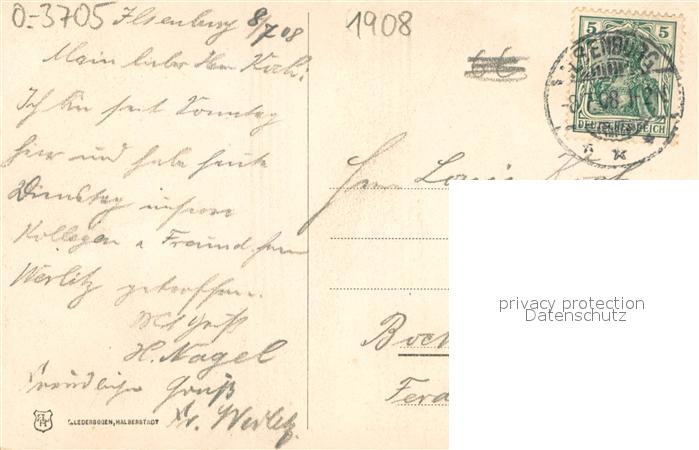 0-3705 Ilsenburg 8/7 08
1908
Mein lieber Herr Koch!
Ich bin seit Sonntag
hier und habe heute
Dienstag unseren
Kollegen u Freund Herrn
Werlitz getroffen.
Gruß
H. Nagel
Freundliche Gruß
Fr. Werlitz.
5 5
ILSENBURG
-8.7.08
DEUTSCHES REICH
Herrn Louis Koch
Boch
Ferd
privacy protection
Datenschutz
LEDERBOGEN, HALBERSTADT